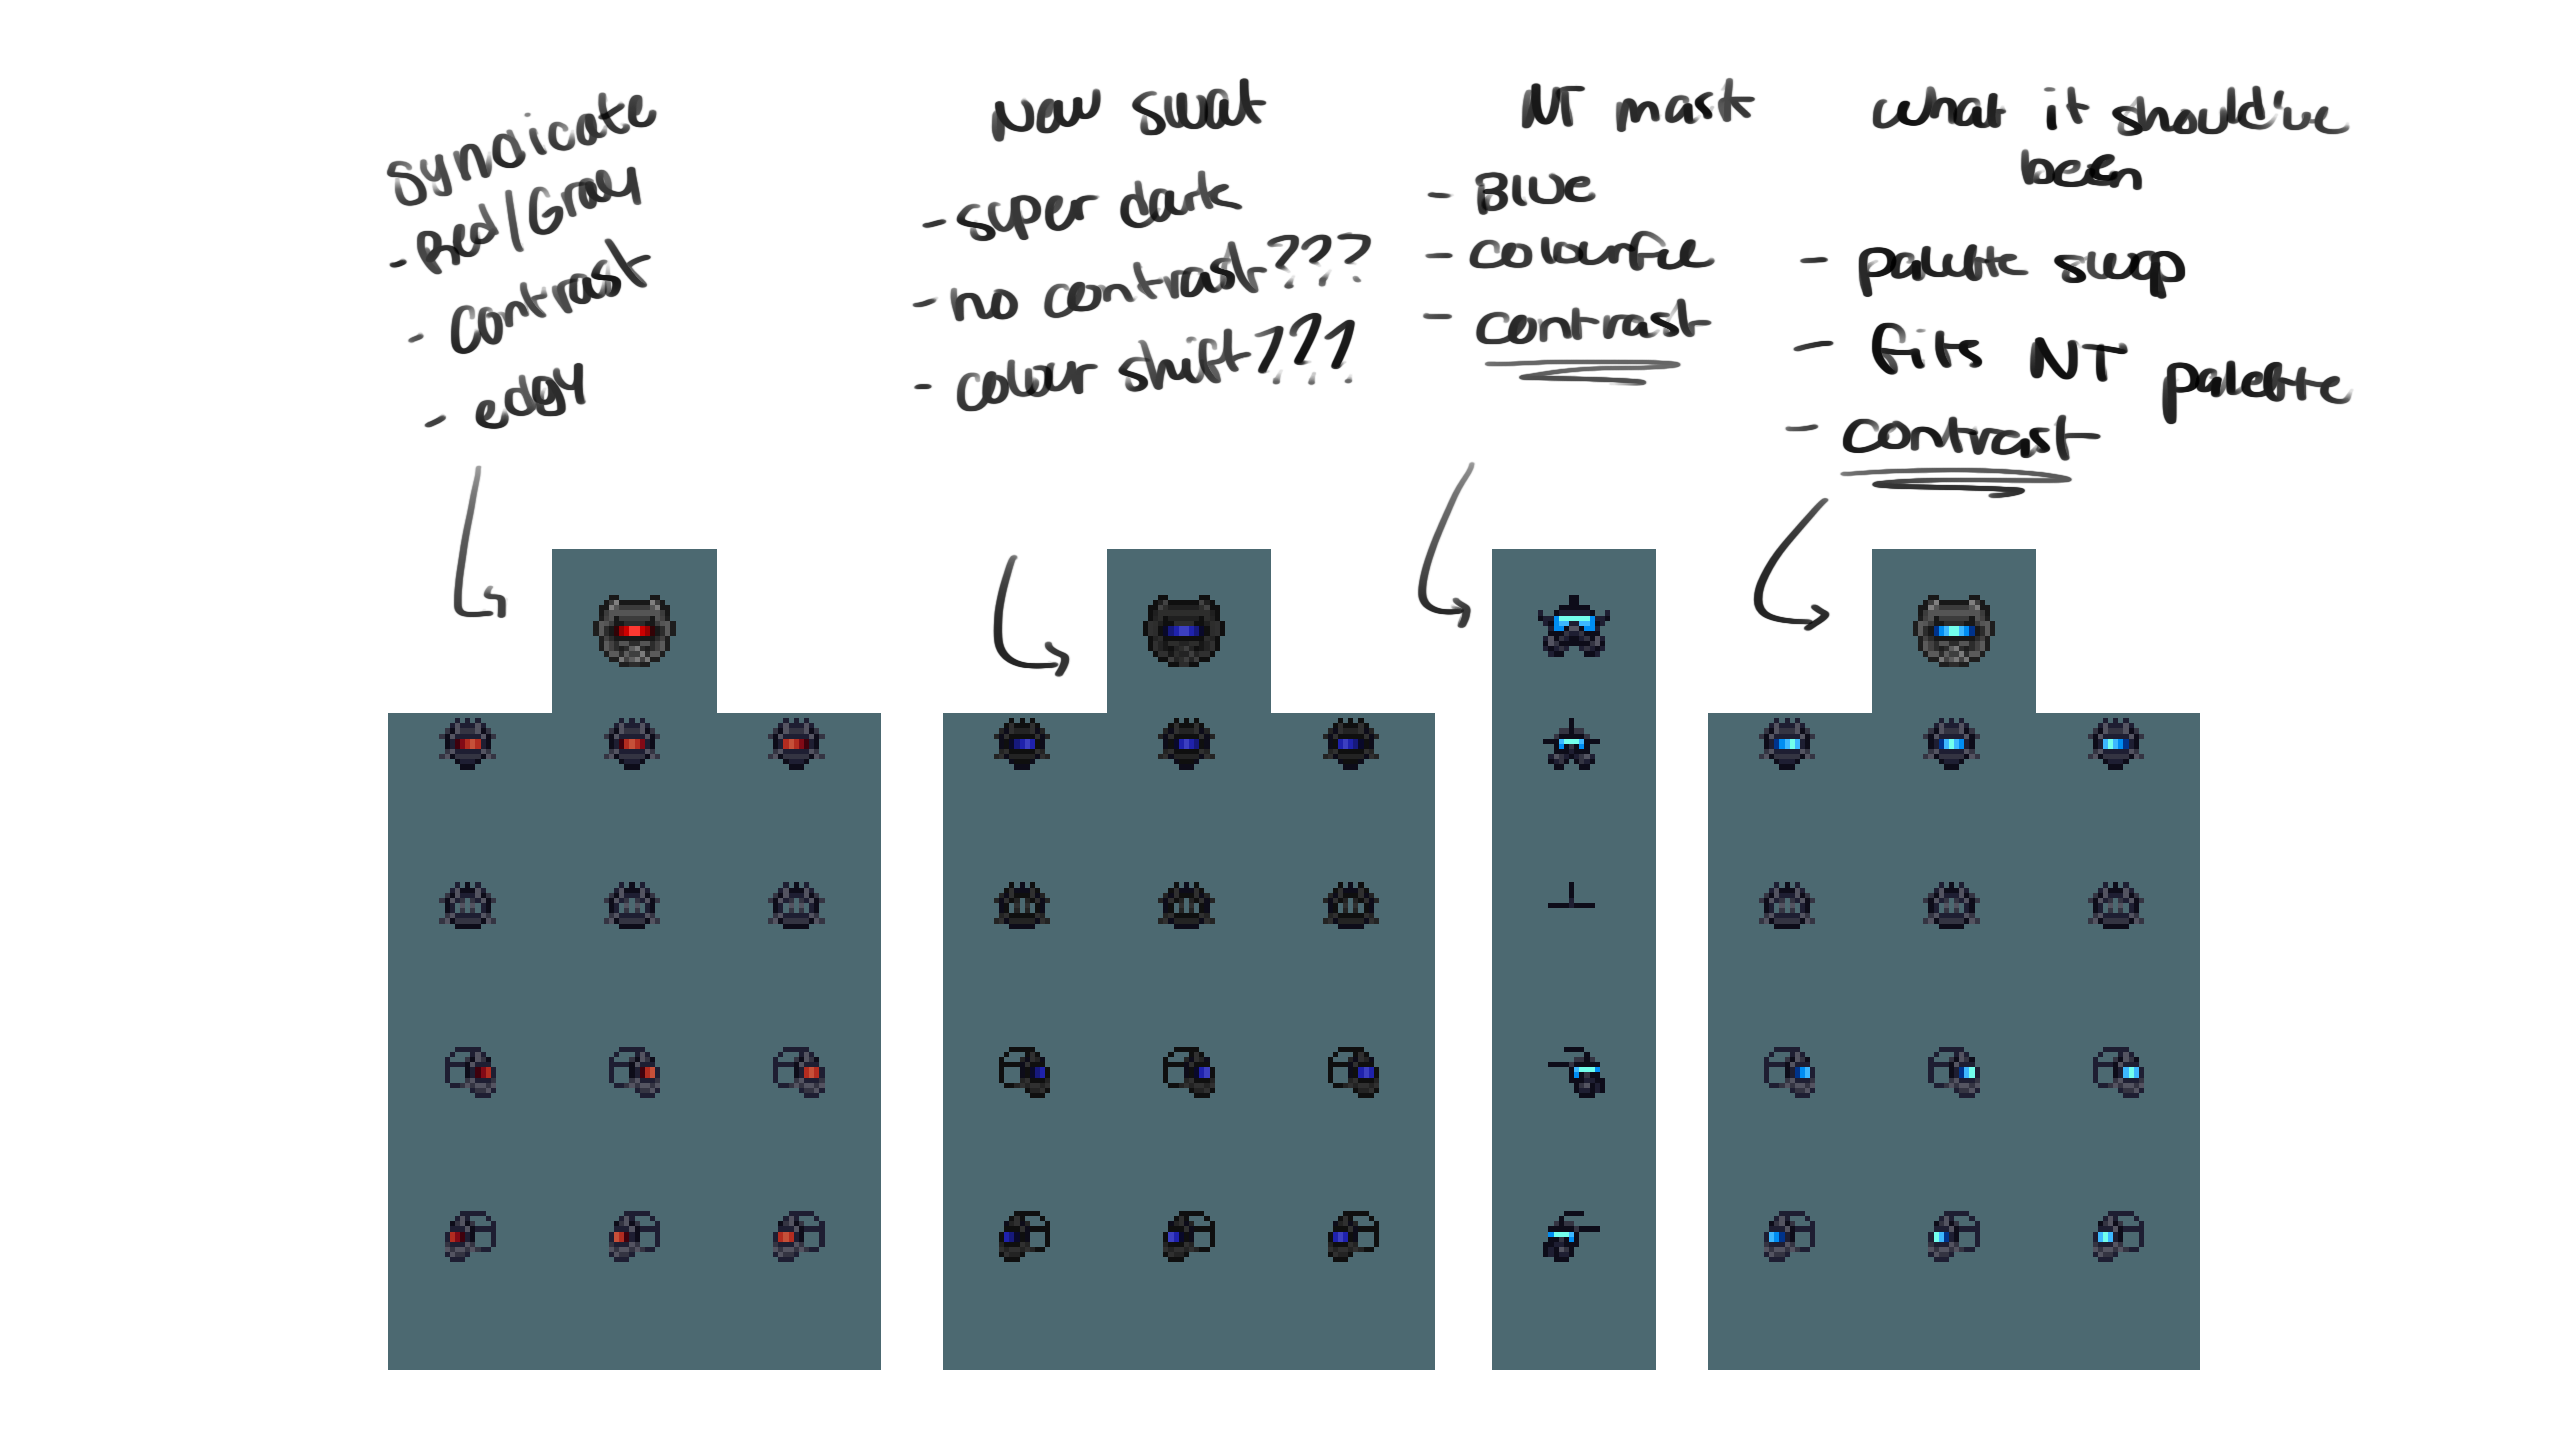 syndicate
- Red/Gray
- contrast
- edgy
New swat
- super dark
- no contrast???
- colour shift???
NT mask
- Blue
- colourful
- contrast
what it should've
been
- palette swap
- fits NT palette
- contrast